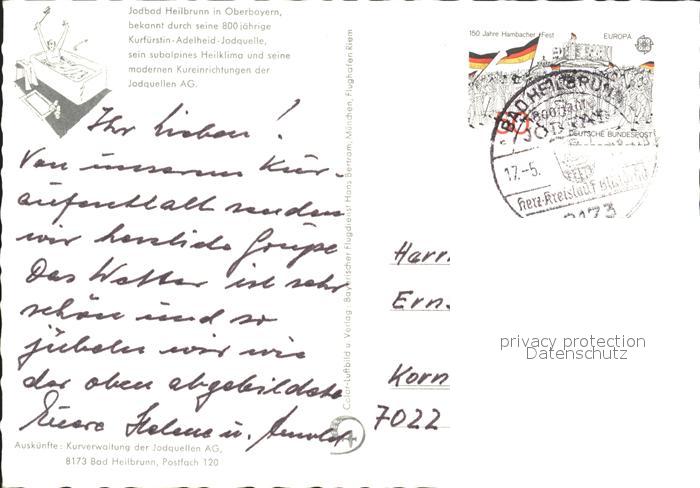 Jodbad Heilbrunn in Oberbayern,
bekannt durch seine 800jährige
Kurfürstin-Adelheid-Jodquelle,
sein subalpines Heilklima und seine
modernen Kureinrichtungen der
Jodquellen AG.
Ihr Lieben!
Von unserem Kur-
aufenthalt senden
wir herzliche Grüße
Das Wetter ist sehr
schön und so
jubeln wir wie
der oben abgebildete
Eure Helene u. Arnold
Auskünfte: Kurverwaltung der Jodquellen AG,
8173 Bad Heilbrunn, Postfach 120
Color-Luftbild u. Verlag: Bayerischer Flugdienst Hans Bertram, München, Flughafen Riem
150 Jahre Hambacher Fest
EUROPA
DEUTSCHE BUNDESPOST
BAD HEILBRUNN
17.-5.
8173
Harr
Ern
Korn
7022
privacy protection
Datenschutz